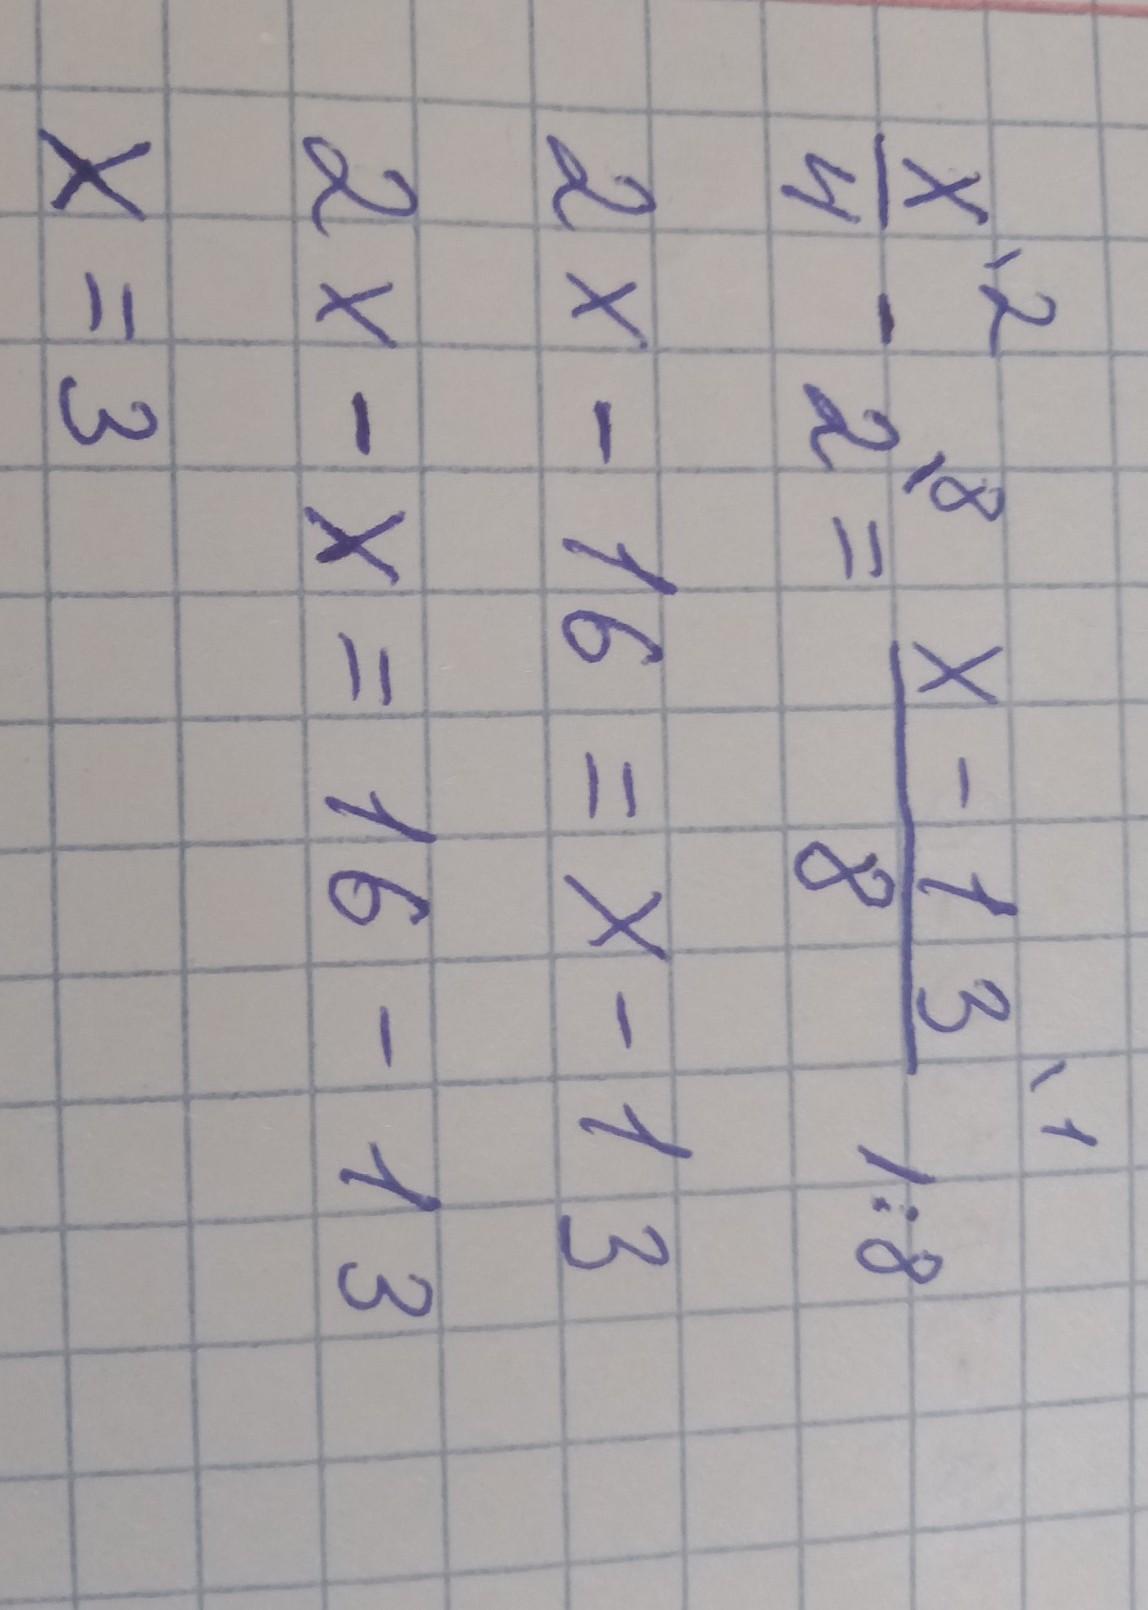 x/4 \2 - 2 \8 = x - 13/8 \1 | : 8
2x - 16 = x - 13
2x - x = 16 - 13
x = 3